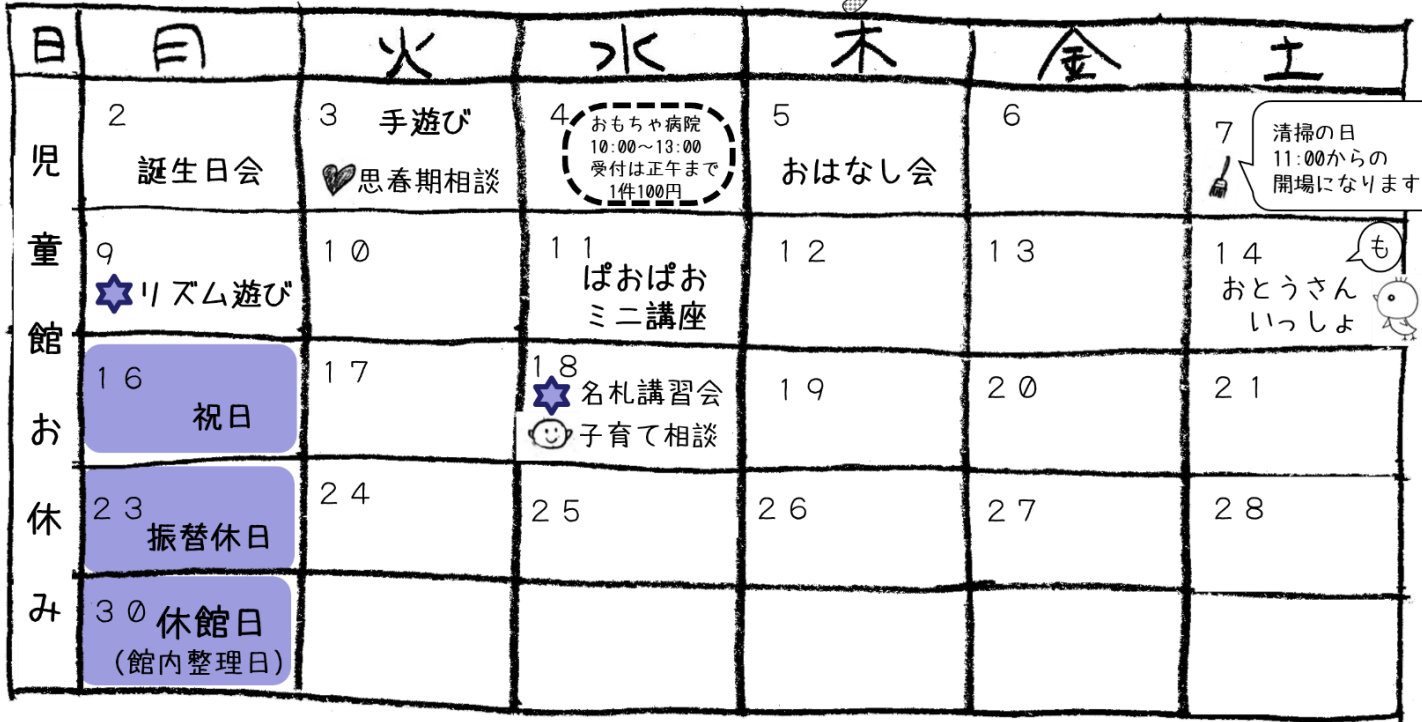 日 月 火 水 木 金 土
児童館お休み
2
誕生日会
3 手遊び
思春期相談
4
おもちゃ病院
10:00～13:00
受付は正午まで
1件100円
5
おはなし会
6
7
清掃の日
11:00からの
開場になります
9
リズム遊び
10
11
ぱおぱお
ミニ講座
12
13
14
も
おとうさん
いっしょ
16
祝日
17
18
名札講習会
子育て相談
19
20
21
23
振替休日
24
25
26
27
28
30 休館日
(館内整理日)